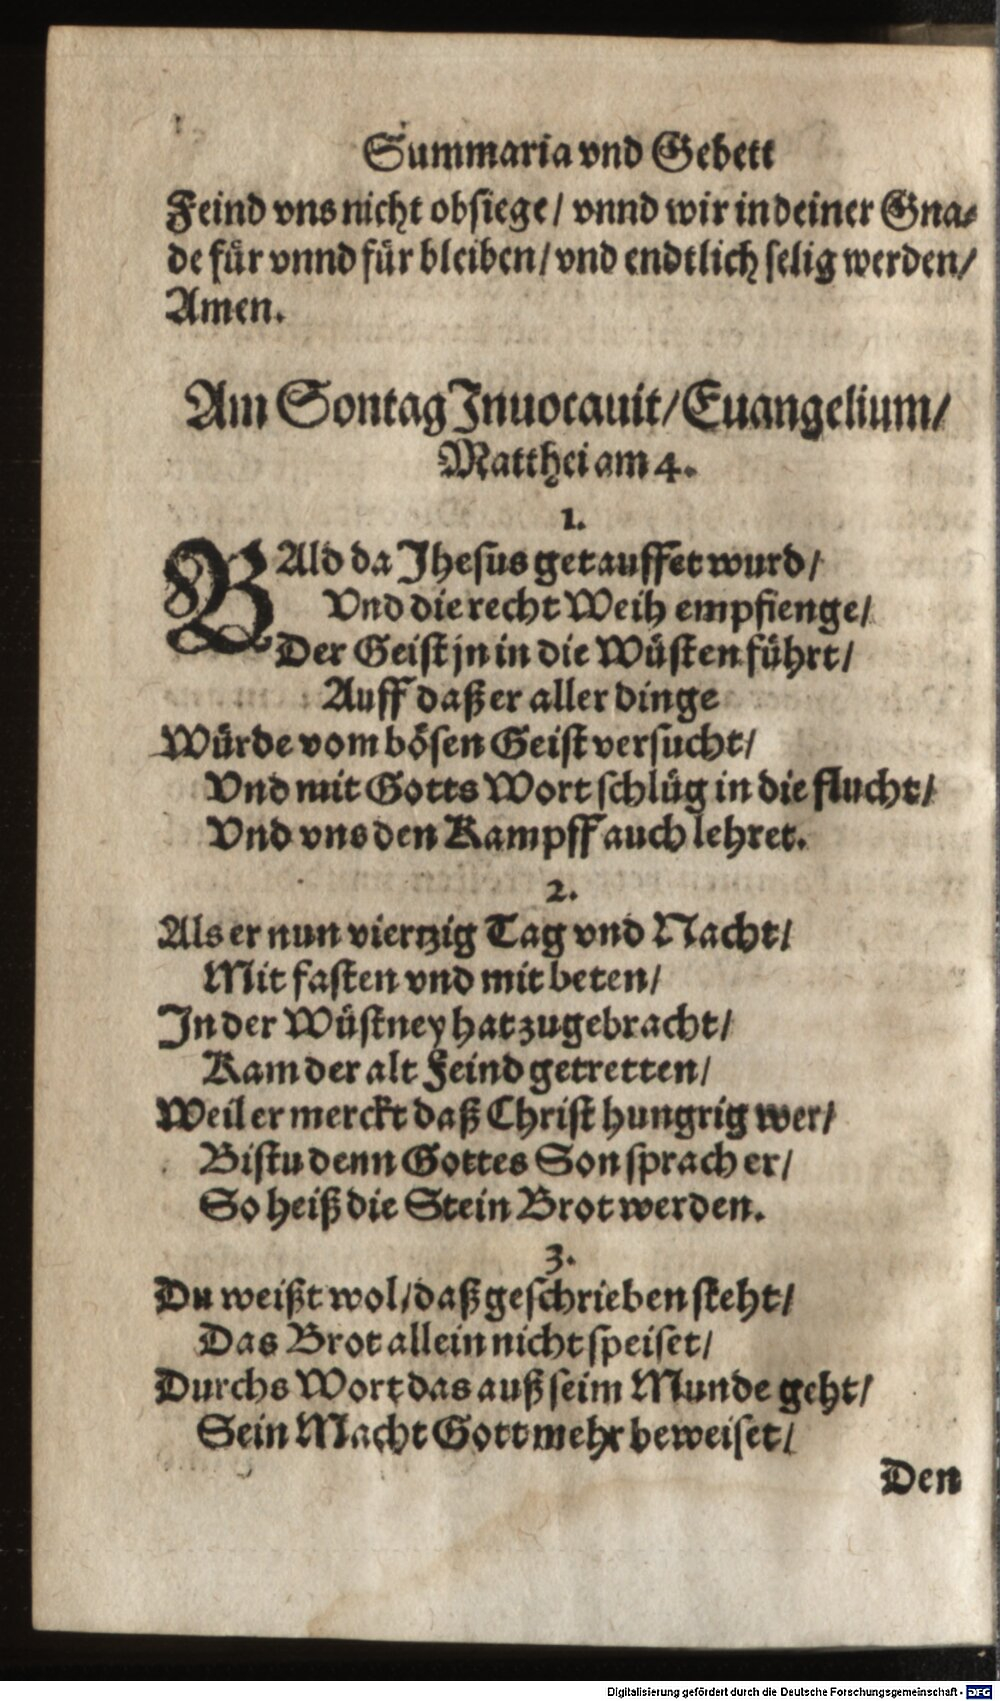 Summaria vnd Gebett
Feind vns nicht obsiege/ vnnd wir in deiner Gna-
de für vnnd für bleiben/ vnd endtlich selig werden/
Amen.
Am Sontag Inuocauit/ Euangelium/
Matthei am 4.
1.
BAld da Jhesus getauffet wurd/
Vnd die recht Weih empfienge/
Der Geist jn in die Wüsten führt/
Auff daß er aller dinge
Würde vom bösen Geist versucht/
Vnd mit Gotts Wort schlüg in die flucht/
Vnd vns den Kampff auch lehret.
2.
Als er nun viertzig Tag vnd Nacht/
Mit fasten vnd mit beten/
In der Wüstney hat zugebracht/
Kam der alt Feind getretten/
Weil er merckt daß Christ hungrig wer/
Bistu denn Gottes Son sprach er/
So heiß die Stein Brot werden.
3.
Du weißt wol/ daß geschrieben steht/
Das Brot allein nicht speiset/
Durchs Wort das auß seim Munde geht/
Sein Macht Gott mehr beweiset/
Den
Digitalisierung gefördert durch die Deutsche Forschungsgemeinschaft - DFG